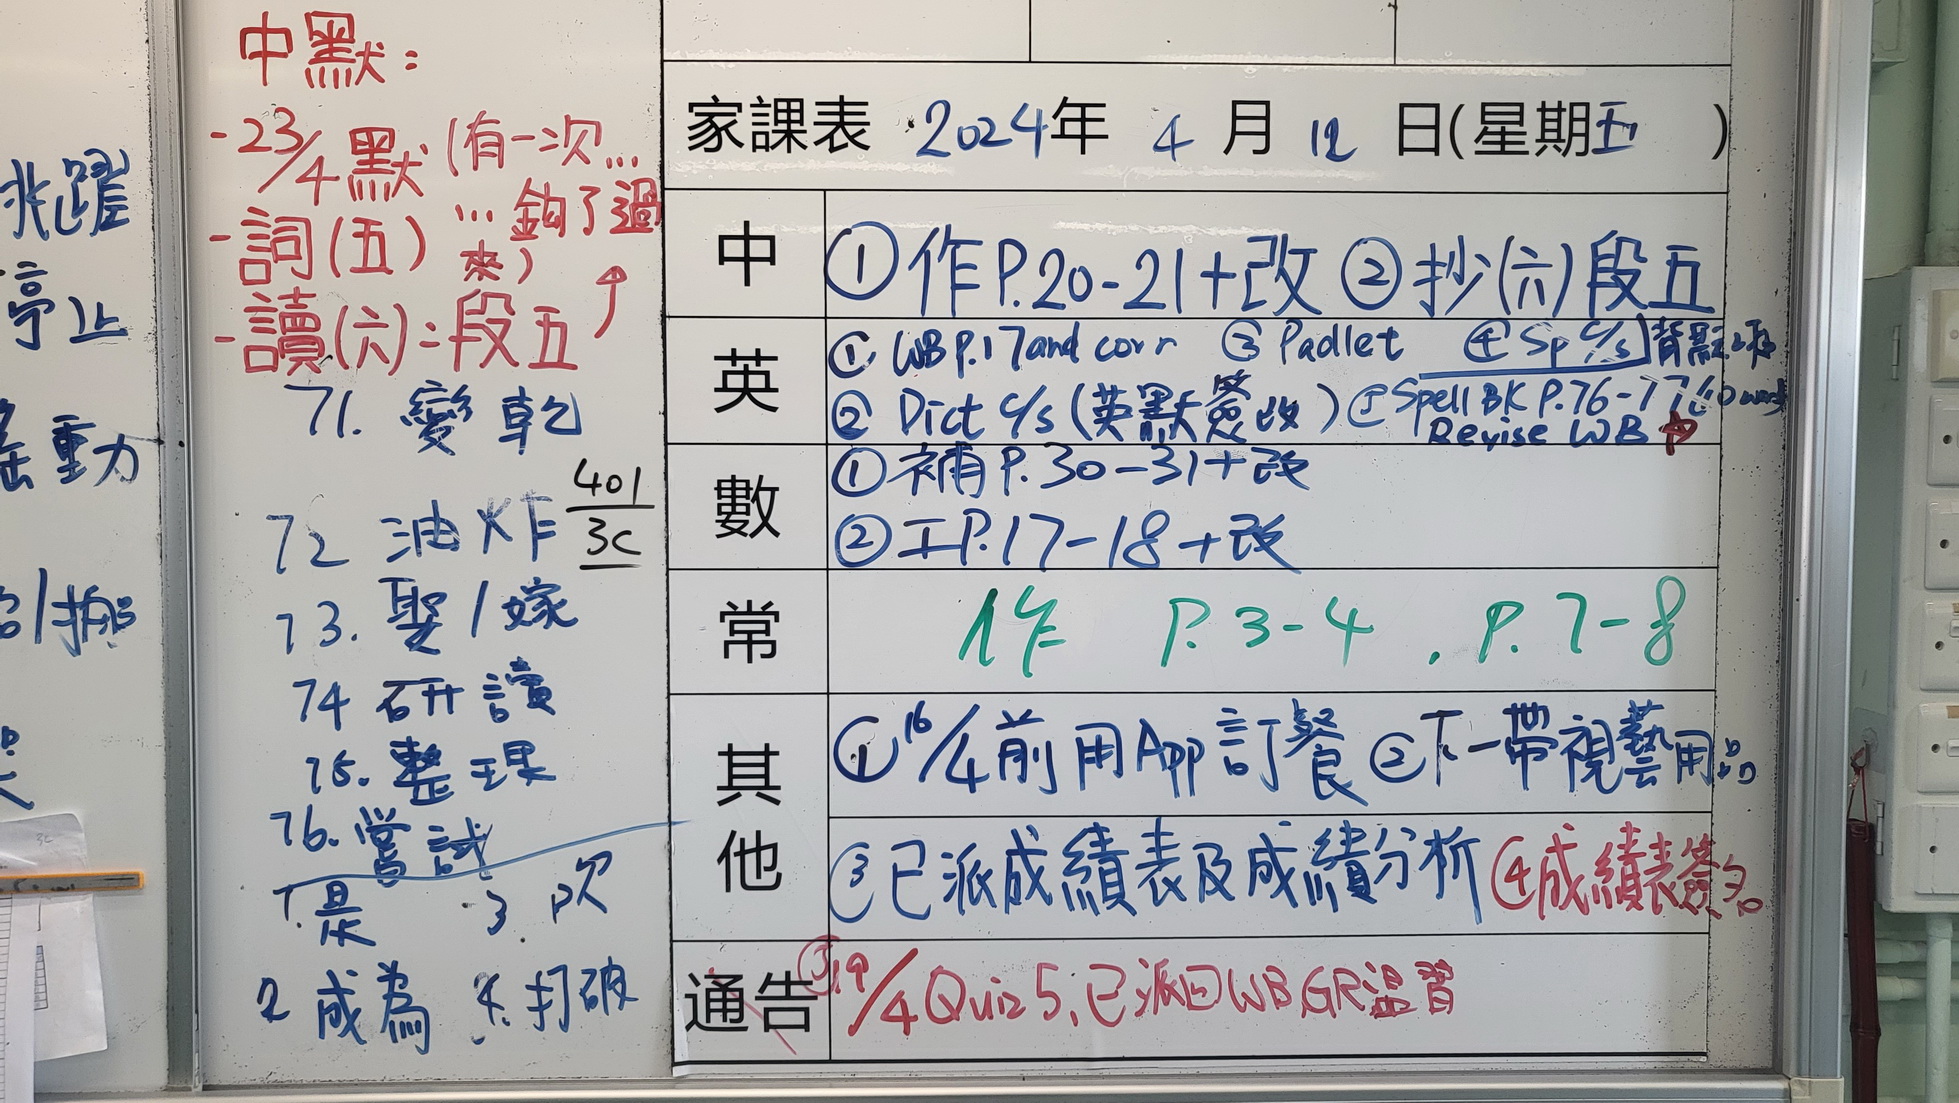 中默：
-23/4默(有一次…
…鈎了過
來)
-詞(五)
-讀(六)：段五
71. 變乾
72 油炸
401
3C
73. 娶/嫁
74 研讀
75. 整理
76. 嘗試
1. 是
3. 次
2 成為
4. 打破
跳躍
停止
搖動
家課表 2024年 4月 12日(星期五)
中
①作P.20-21+改 ②抄(六)段五
英
① WB P.17 and corr ③ Padlet ④ Sp c/s 背默
② Dict c/s (英默簽改) ⑤ Spell BK P.76-77
Revise WB
數
①補P.30-31+改
②工P.17-18+改
常
作 P.3-4 . P.7-8
其他
①16/4前用App訂餐 ②下一帶視藝用品
③已派成績表及成績分析 ④成績表簽名
通告
19/4 Quiz 5, 已派回WB, GR溫習